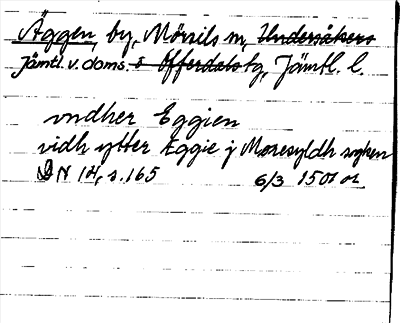 Äggen, by, Mörsils sn, Undersåkers
Jämtl. v. doms. o Offerdals tg, Jämtl. l.
vndher Eggien
vidh ytter Eggie j Moresyldh sogken
DN 14, s. 165 6/3 1501 or